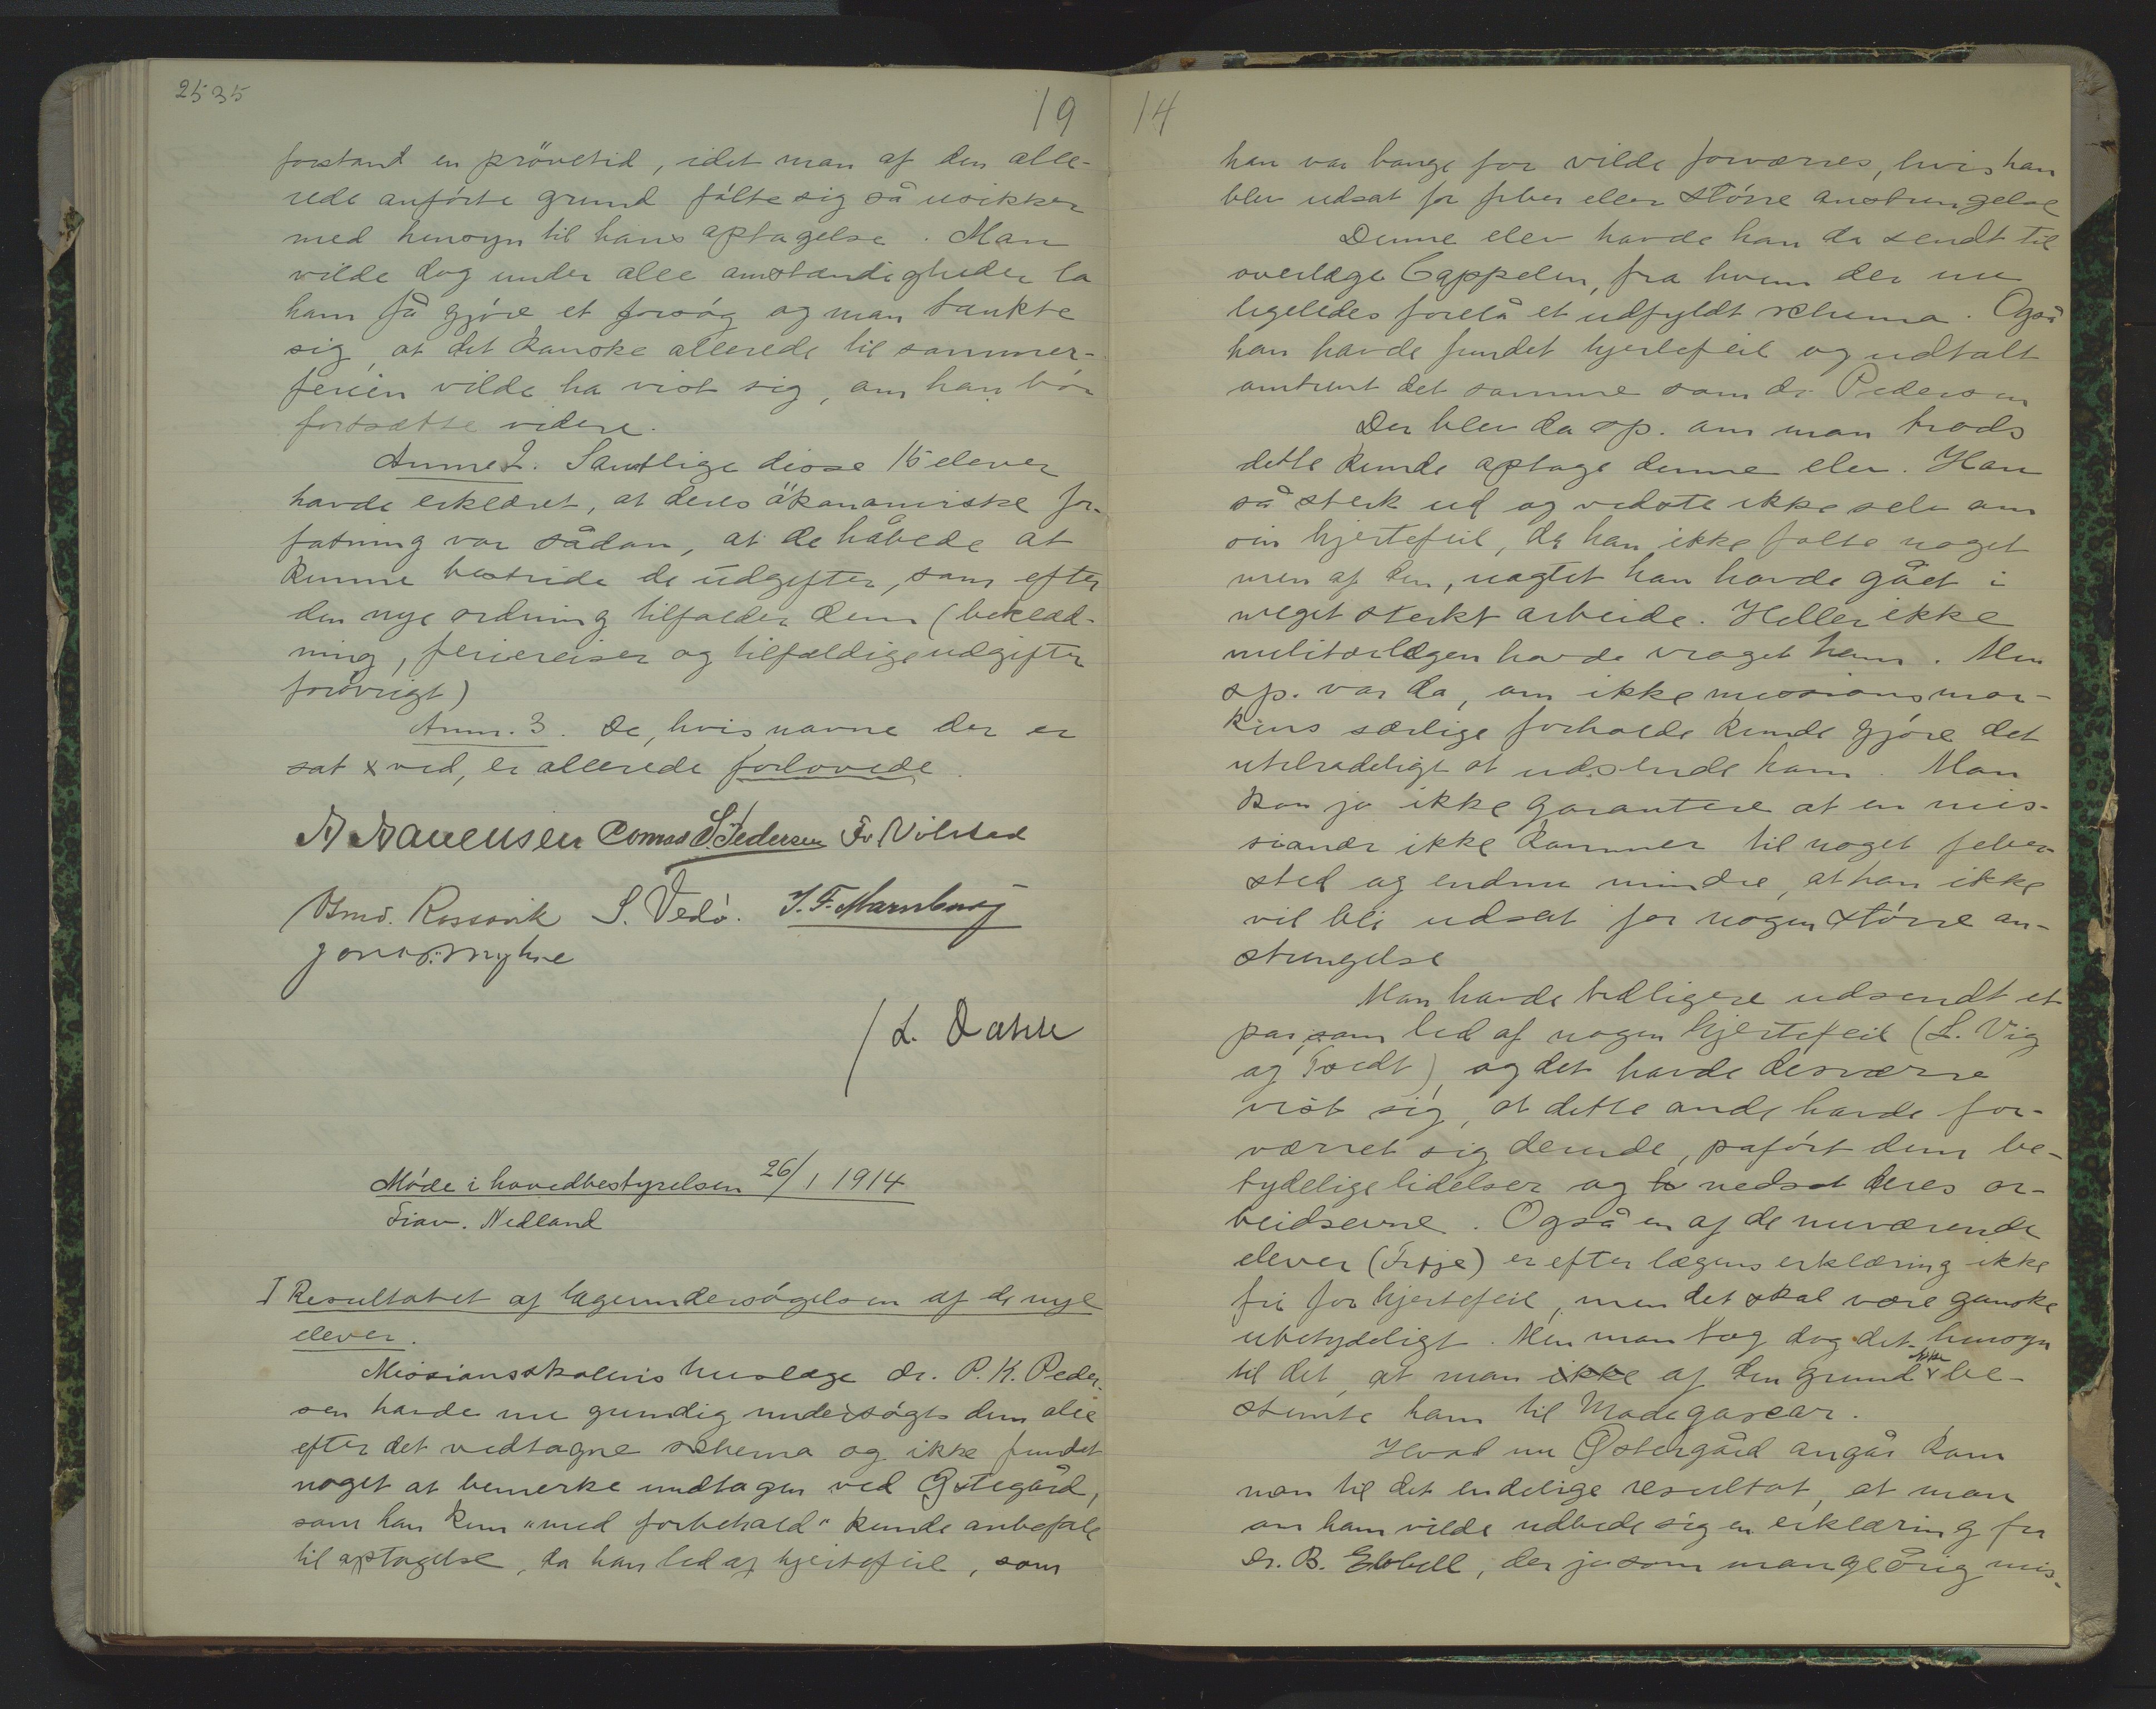 2535
19
forstand en prövetid, idet man af den alle-
rede anförte grund fölte sig så usikker
med hensyn til hans optagelse. Man
vilde dog under alle omstændigheder la
ham få gjöre et forsög og man tænkte
sig, at det kanske allerede til sommer-
ferien vilde ha vist sig, om han bör
fortsætte videre.
Anm. 2. Samtlige disse 15 elever
havde erklæret, at deres ökonomiske for-
fatning var sådan, at de håbede at
kunne bestride de udgifter, som efter
den nye ordning tilfalder dem (beklæd-
ning, feriereiser og tilfældige udgifter
forövrigt)
Anm. 3. De, hvis navne der er
sat x ved, er allerede forlovede.
Conrad S. Pedersen
Rossavik S. Vedö.
L. Dahle
Möde i hovedbestyrelsen 26/1 1914
Frav. Nedland
I Resultatet af lægeundersögelsen af de nye
elever.
Missionsskolens huslæge dr. P. K. Peder-
sen havde nu grundig undersögt dem alle
efter det vedtagne schema og ikke fundet
noget at bemerke undtagen ved Østegård,
som han kun "med forbehold" kunde anbefale
til optagelse, da han led af hjertefeil, som
14
han var bange for vilde forværres, hvis han
blev udsat for feber eller större anstrengelse
Denne elev havde han da sendt til
overlæge Cappelen, fra hvem der nu
ligeledes forelå et udfyldt schema. Også
han havde fundet hjertefeil og udtalt
omtrent det samme som dr Pedersen
Der blev da sp. om man trods
dette kunde optage denne elev. Han
så sterk ud og vidste ikke selv om
sin hjertefeil, da han ikke fölte noget
men af den, uagtet han havde gået i
meget sterkt arbeide. Heller ikke
militærlægen havde vraget ham. Men
sp. var da, om ikke missionsmar-
kens særlige forholde kunde gjöre det
utilradeligt at udsende ham. Man
kan jo ikke garantere at en mis-
sionær ikke kommer til noget feber-
sted og endnu mindre, at han ikke
vil bli udsat for nogen större an-
strengelse
Man havde tidligere udsendt et
par, som led af nogen hjertefeil (L. Vig
og Tvedt), og det havde desværre
vist sig, at dette onde havde for-
værret sig derude, påfört dem be-
tydelige lidelser og nedsat deres ar-
beidsevne. Også en af de nuværende
elever (Frøje) er efter lægens erklæring ikke
fri for hjertefeil, men det skal være ganske
ubetydeligt. Men man tog dog det hensyn
til det, at man ikke af den grund ikke be-
stemte ham til Madagascar.
Hvad nu Østergård angår kom
man til det endelige resultat, at man
om ham vilde udbede sig en erklæring fra
Dr. B. Ebbell, der jo som mangeårig mis-